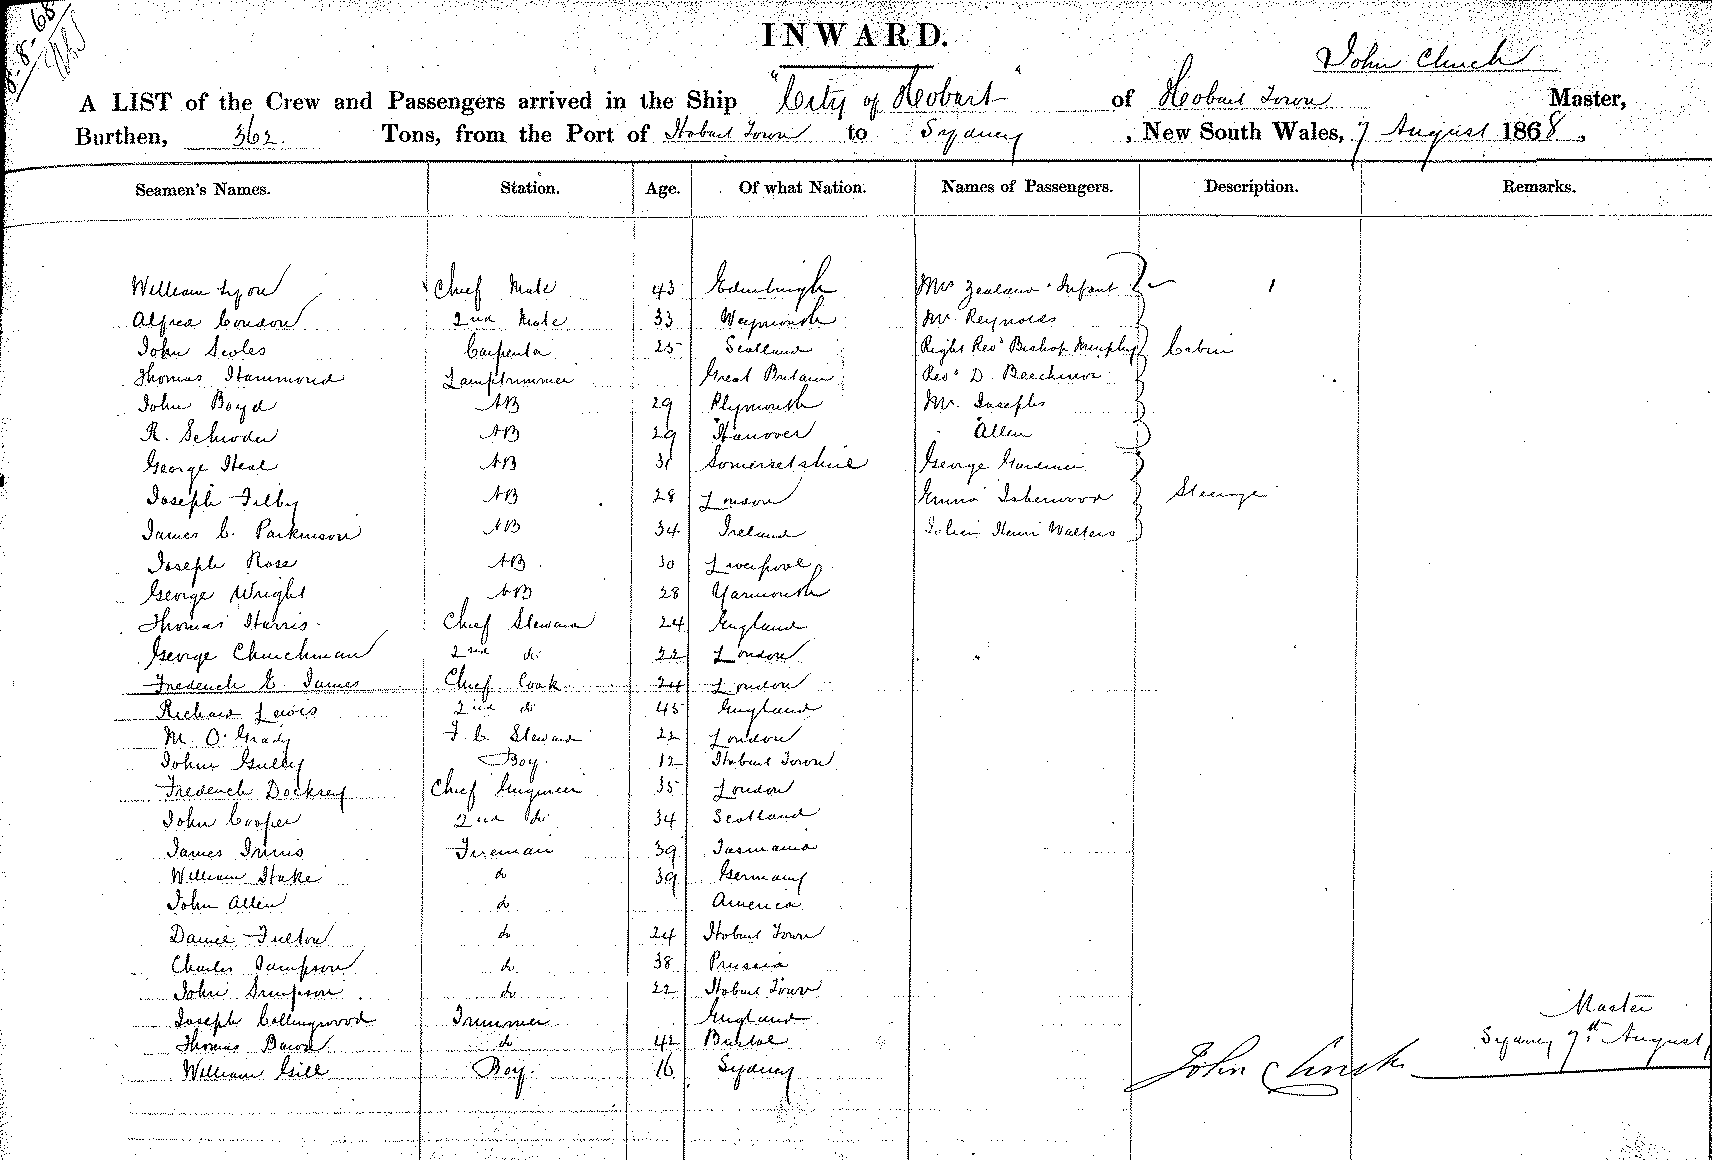 8-8-68
INWARD.
John Clinch
A LIST of the Crew and Passengers arrived in the Ship "City of Hobart" of Hobart Town Master,
Burthen, 362 Tons, from the Port of Hobart Town to Sydney, New South Wales, 7 August 1868.
Seamen's Names. Station. Age. Of what Nation. Names of Passengers. Description. Remarks.
William Lyon Chief Mate 43 Edinburgh Mrs Zealand Infant 1
Alfred Condon 2nd Mate 33 Weymouth Mr Reynolds
John Scoles Carpenter 25 Scotland Right Revd Bishop Murphy Cabin
Thomas Hammond Lamptrimmer Great Britain Revd D. Beechinor
John Boyd AB 29 Plymouth Mr. Josephs
R. Schroder AB 29 Hanover " Allen
George Heal AB 31 Somersetshire George Gardiner
Joseph Filby AB 28 London Emma Isherwood Steerage
James C. Parkinson AB 34 Ireland Henri Walters
Joseph Rose AB 30 Liverpool
George Wright AB 28 Yarmouth
Thomas Harris Chief Steward 24 England
George Churchman 2nd do 22 London
Frederick E. James Chief Cook 24 London
Richard Lewis 2nd do 45 England
M. O'Grady F. C. Steward 22 London
John Gulley Boy 12 Hobart Town
Frederick Docksey Chief Engineer 35 London
John Cooper 2nd do 34 Scotland
James Innis Fireman 39 Tasmania
William Hake do 39 Germany
John Allen do America
Daniel Fulton do 24 Hobart Town
Charles Sampson do 38 Prussia
John Simpson do 22 Hobart Town
Joseph Collingwood Trimmer England
Thomas Bacon do 42 Bristol
William Gill Boy. 16 Sydney
John Clinch Master
Sydney 7th August